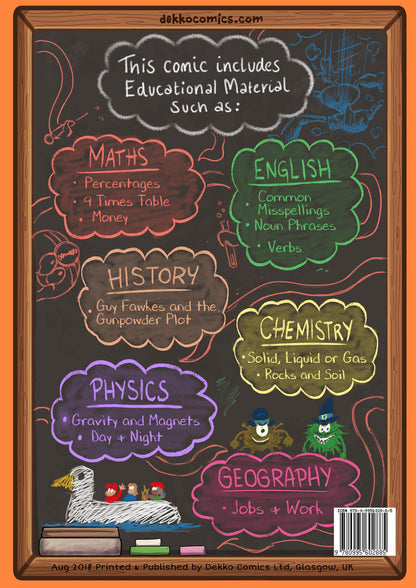 dekkocomics.com
This Comic includes
Educational Material
Such as:
MATHS
• Percentages
• 9 Times Table
• Money
ENGLISH
• Common
Misspellings
• Noun Phrases
• Verbs
HISTORY
• Guy Fawkes and the
Gunpowder Plot
CHEMISTRY
• Solid, Liquid or Gas
• Rocks and Soil
PHYSICS
• Gravity and Magnets
• Day & Night
GEOGRAPHY
• Jobs & Work
9 780995 602885
Aug 2018 Printed & Published by Dekko Comics Ltd, Glasgow, UK